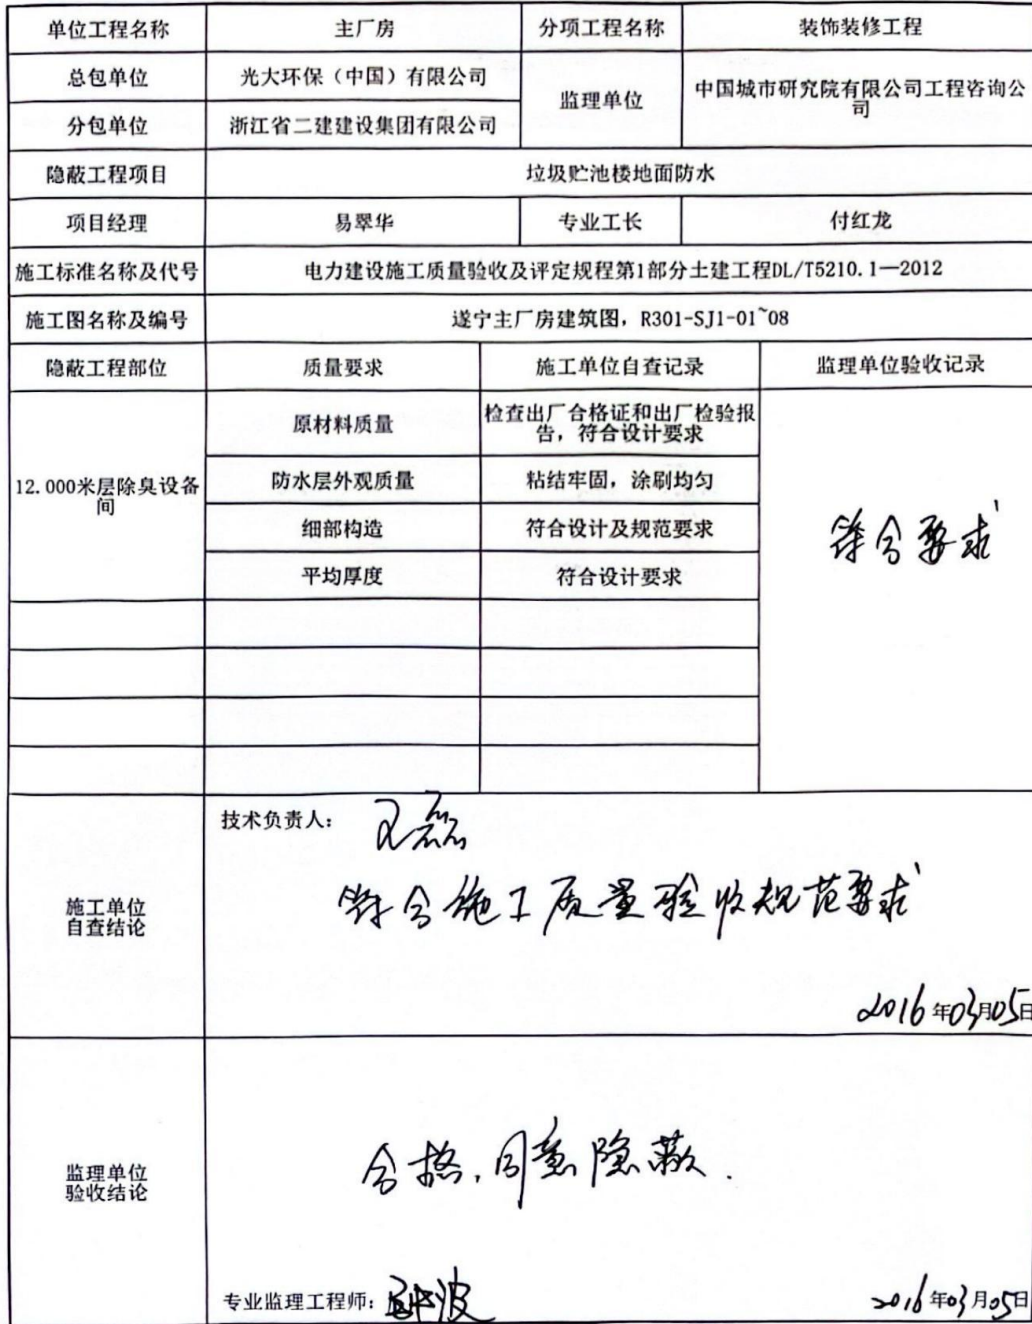 单位工程名称 主厂房 分项工程名称 装饰装修工程
总包单位 光大环保（中国）有限公司 监理单位 中国城市研究院有限公司工程咨询公
司
分包单位 浙江省二建建设集团有限公司
隐蔽工程项目 垃圾贮池楼地面防水
项目经理 易翠华 专业工长 付红龙
施工标准名称及代号 电力建设施工质量验收及评定规程第1部分土建工程DL/T5210.1—2012
施工图名称及编号 遂宁主厂房建筑图，R301-SJ1-01~08
隐蔽工程部位 质量要求 施工单位自查记录 监理单位验收记录
12.000米层除臭设备
间
原材料质量 检查出厂合格证和出厂检验报
告，符合设计要求
防水层外观质量 粘结牢固，涂刷均匀
细部构造 符合设计及规范要求
平均厚度 符合设计要求
符合要求
施工单位
自查结论
技术负责人：
符合施工质量验收规范要求
2016年03月05日
监理单位
验收结论
合格，同意隐蔽.
专业监理工程师：
2016年03月05日